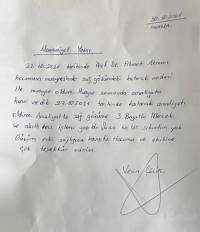 30.10.2021
Memnuniyet Yazısı
22.10.2021 tarihinde Prof. Dr. Ahmet Akman
hocamın muayenesinde sağ gözümdeki katarakt nedeni
ile muayene oldum. Muayene sonrasında ameliyata
karar verdik 27.10.2021 tarihinde katarakt ameliyatı
oldum. Ameliyatta sağ gözüme 3 Boyutlu Mercek
ve akıllı lens işlemi yapıldı. Şuan hiç bir sıkıntım yok.
Gözüm eski sağlığına kavuştu. Hocama ve ekibine
çok teşekkür ederim.